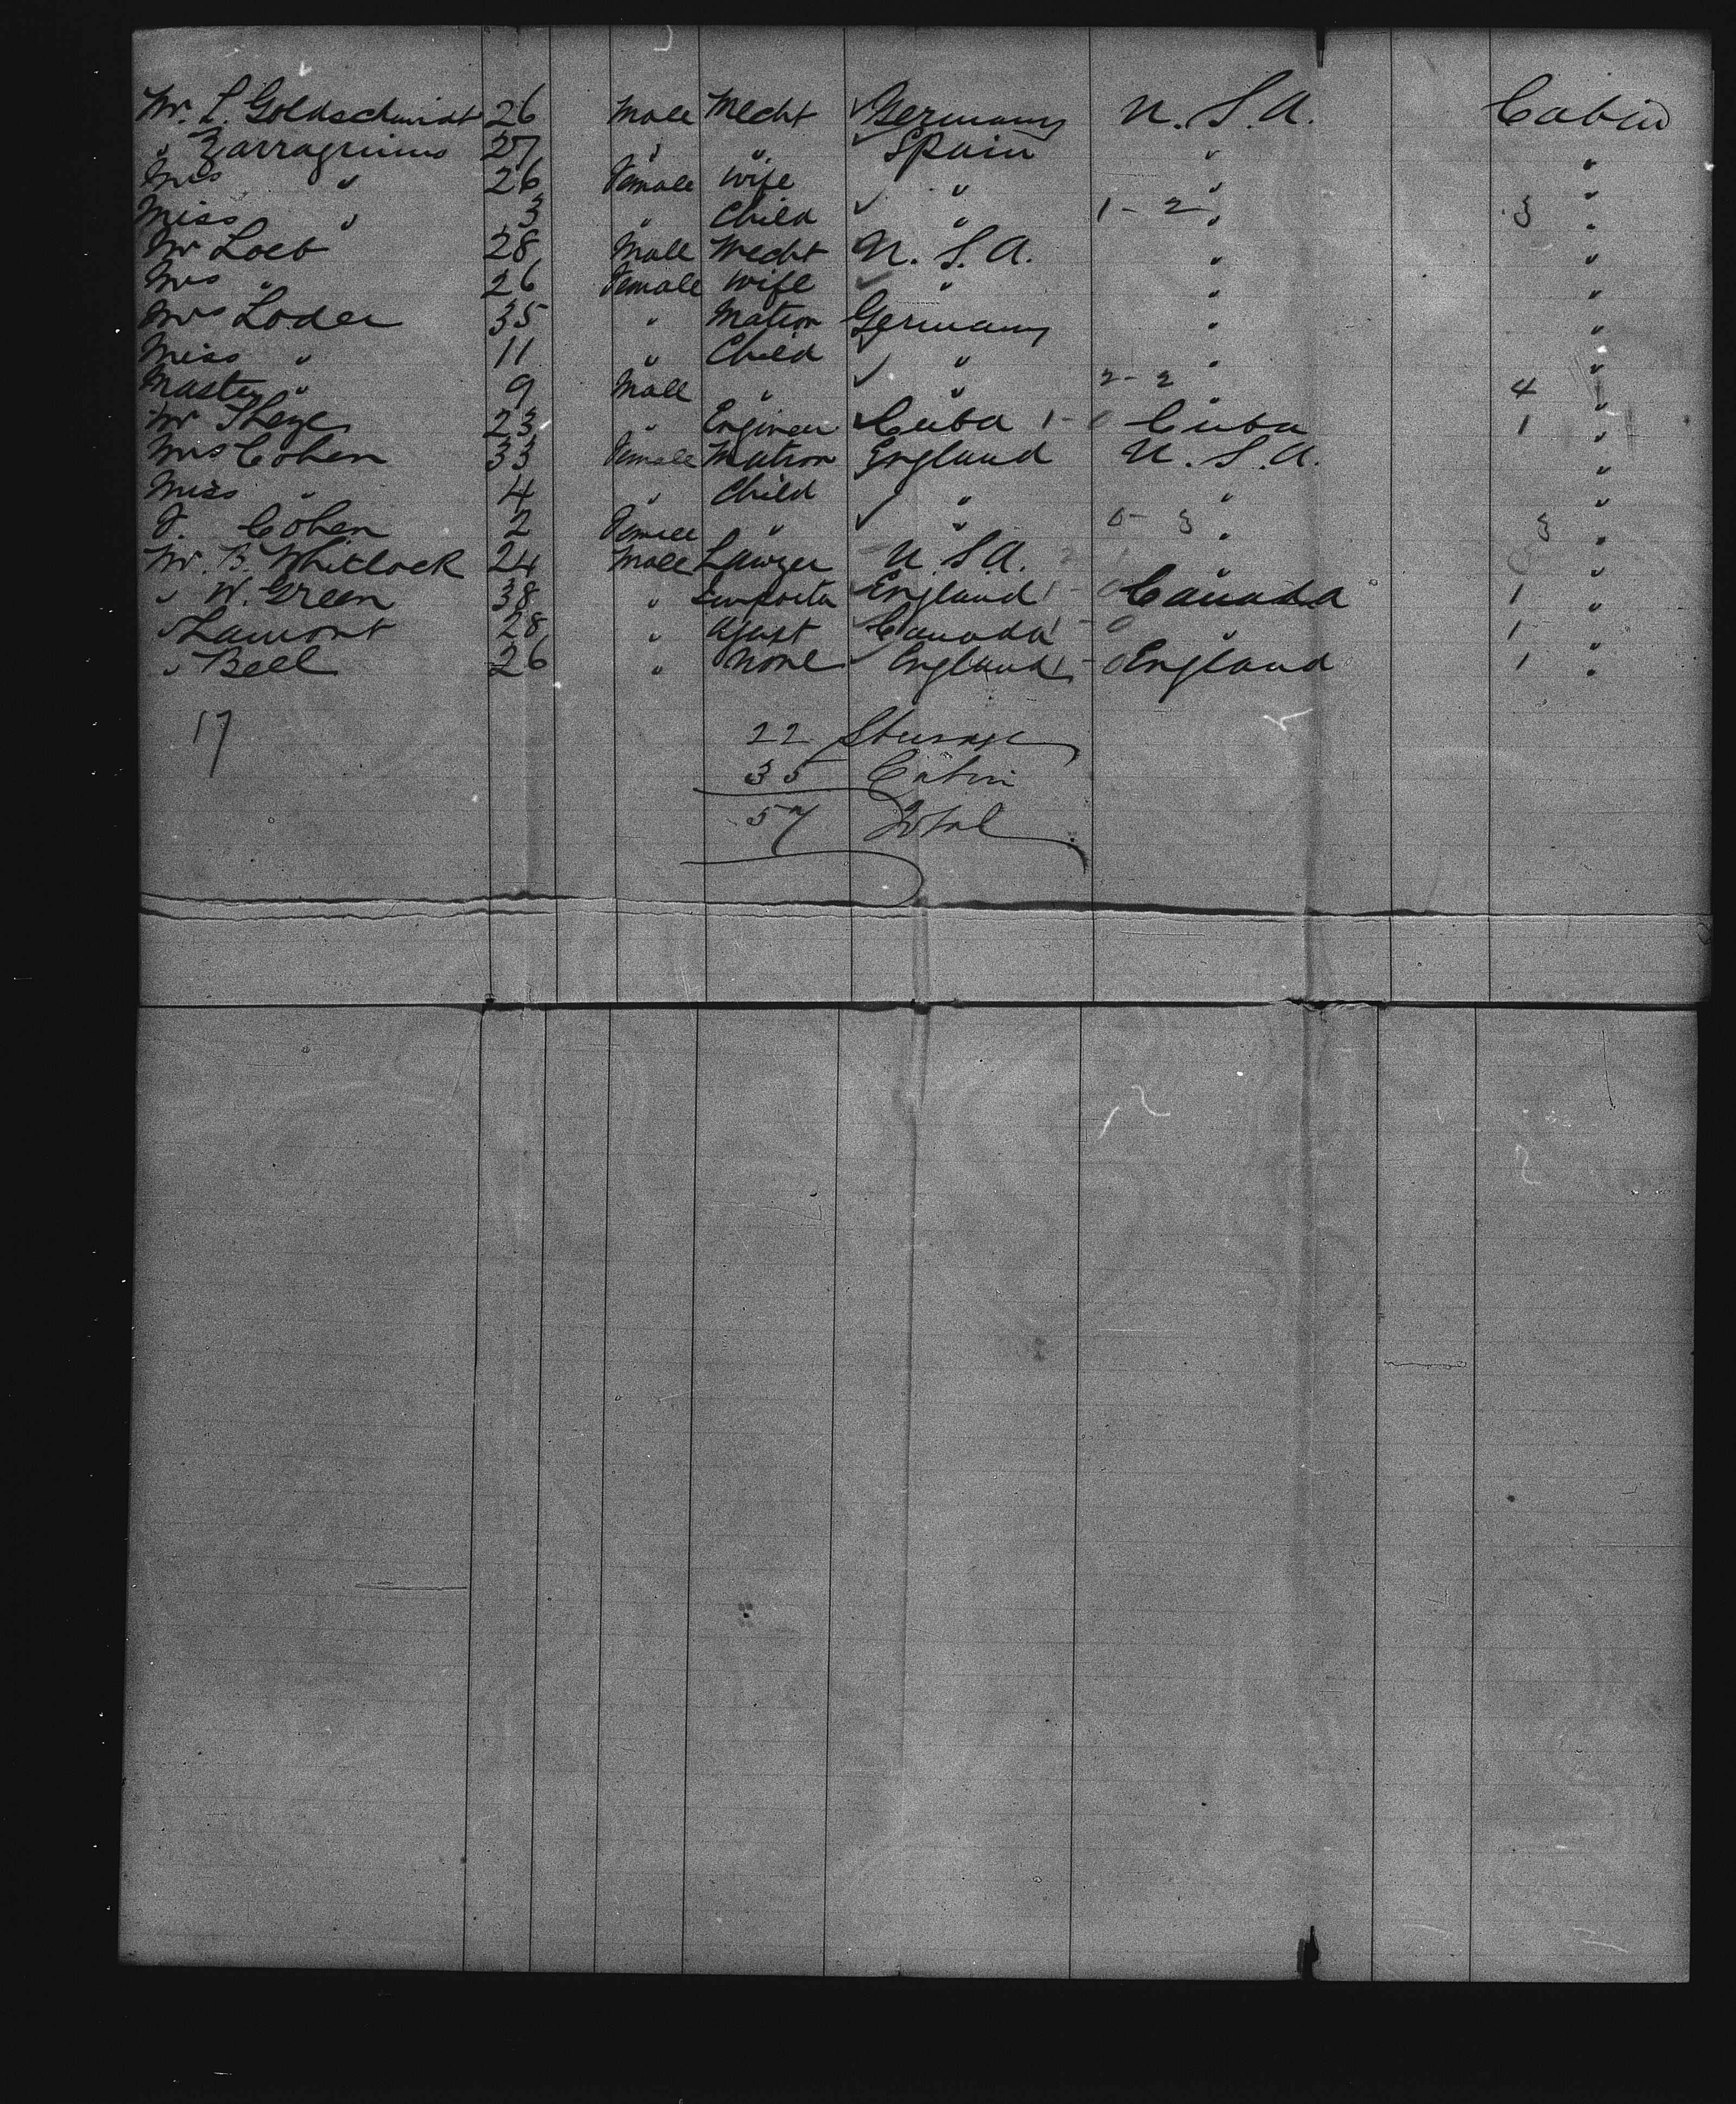 Mr. L. Goldschmidt 26 Male Mecht Germany U. S. A. Cabin
" Zarraguinus 27 " " Spain " "
Mrs " 26 Female Wife " " "
Miss " 3 " Child " 1-2 " 3 "
Mr Loeb 28 Male Mecht U. S. A. " "
Mrs " 26 Female Wife " " "
Mrs Loder 35 " Matron Germany " "
Miss " 11 " Child " " "
Master " 9 Male " " 2-2 " 4 "
Mr 23 " Engineer Cuba 1-0 Cuba 1 "
Mrs Cohen 33 Female Matron England U. S. A. "
Miss " 4 " Child " " "
J. Cohen 2 Female " " 0-3 " 3 "
Mr. B. Whitlock 24 Male Lawyer U. S. A. " "
" W. Green 38 " England 1-0 Canada 1 "
" Lamont 28 " Agent Canada 1-0 " 1 "
" Bell 26 " None England 1-0 England 1 "
17
22 Steerage
35 Cabin
57 Total